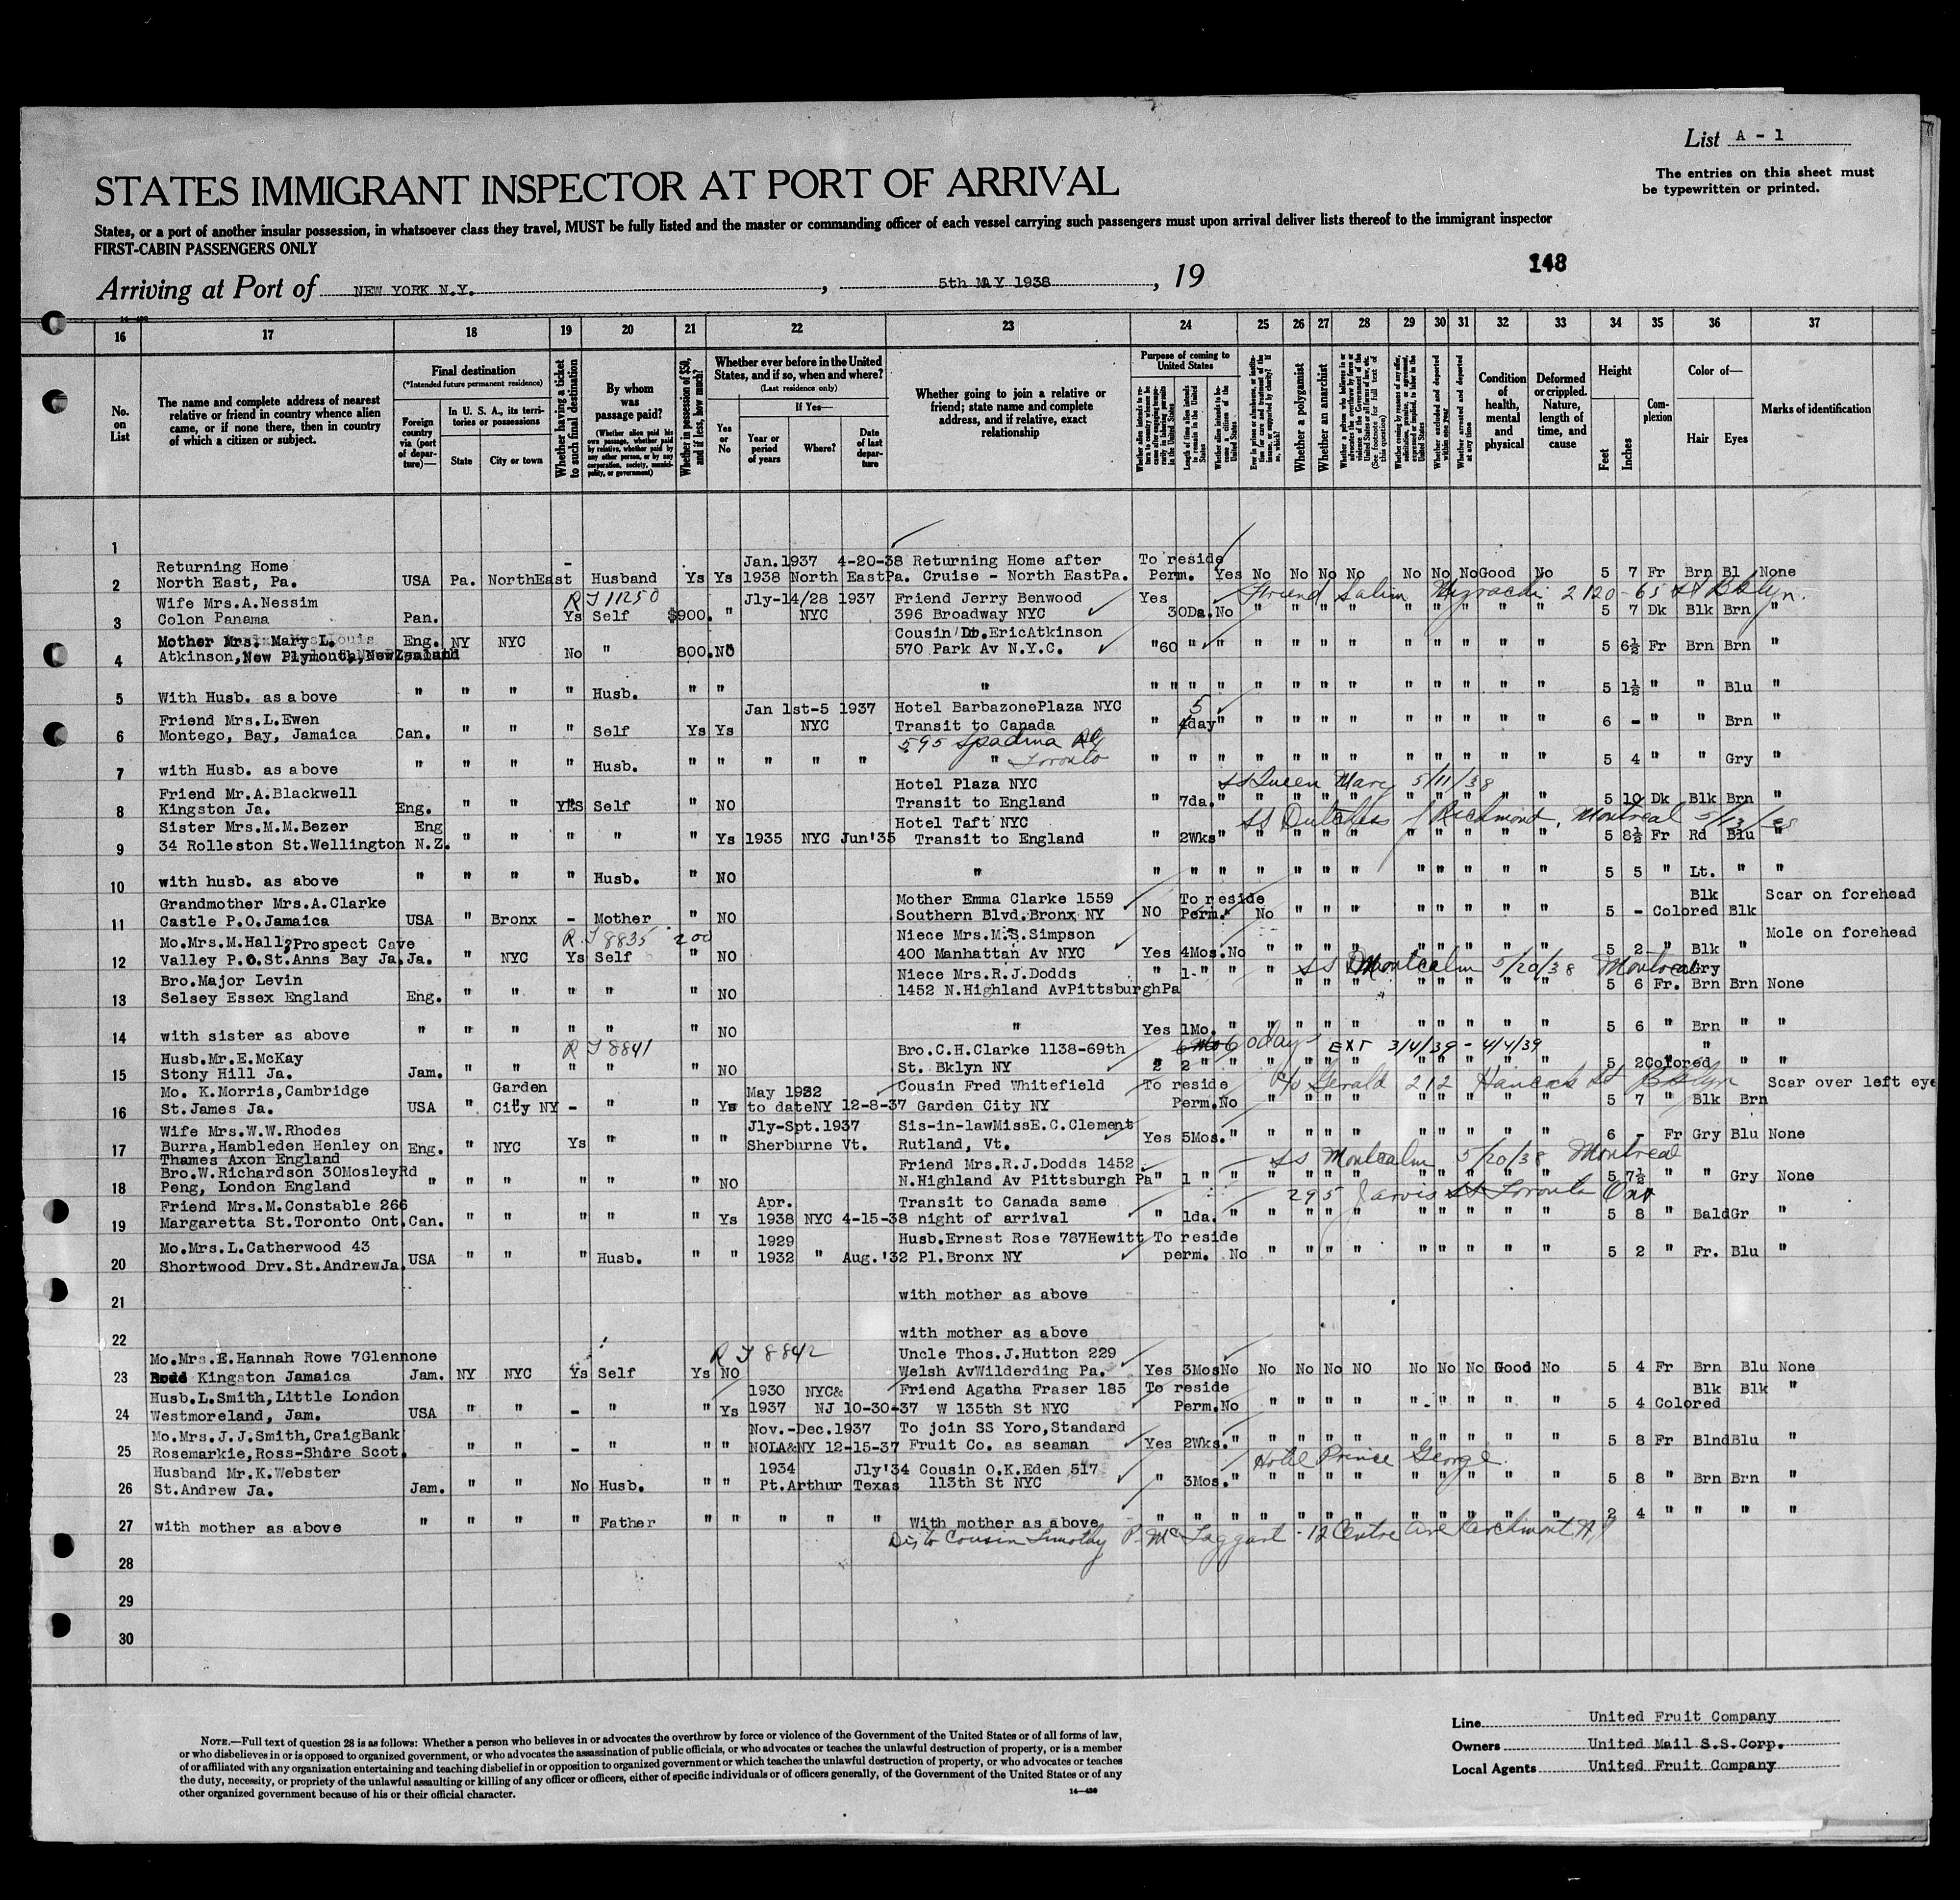 List A - 1
The entries on this sheet must
be typewritten or printed.
STATES IMMIGRANT INSPECTOR AT PORT OF ARRIVAL
States, or a port of another insular possession, in whatsoever class they travel, MUST be fully listed and the master or commanding officer of each vessel carrying such passengers must upon arrival deliver lists thereof to the immigrant inspector
FIRST-CABIN PASSENGERS ONLY
148
Arriving at Port of NEW YORK N.Y. , 5th MAY 1938 , 19
16 17 18 19 20 21 22 23 24 25 26 27 28 29 30 31 32 33 34 35 36 37
No. on List
The name and complete address of nearest relative or friend in country whence alien came, or if none there, then in country of which a citizen or subject.
Final destination
(*Intended future permanent residence)
Foreign country via (port of departure)—
In U. S. A., its territories or possessions
State
City or town
Whether having a ticket to such final destination
By whom was passage paid?
(Whether alien paid his own passage, whether paid by relative, whether paid by any other person, or by any corporation, society, municipality, or government)
Whether in possession of $50, and if less, how much?
Whether ever before in the United States, and if so, when and where?
(Last residence only)
Yes or No
If Yes—
Year or period of years
Where?
Date of last departure
Whether going to join a relative or friend; state name and complete address, and if relative, exact relationship
Purpose of coming to United States
Length of time alien intends to remain in the United States
Whether alien intends to become a citizen of the United States
Whether a polygamist
Whether an anarchist
Condition of health, mental and physical
Deformed or crippled. Nature, length of time, and cause
Height
Feet
Inches
Complexion
Color of—
Hair
Eyes
Marks of identification
1
Jan.1937 4-20-38 Returning Home after To reside
Returning Home
2 North East, Pa. USA Pa. NorthEast - Husband Ys Ys 1938 North EastPa. Cruise - North EastPa. Perm. Yes No No No No No No No Good No 5 7 Fr Brn Bl None
Wife Mrs.A.Nessim RJ 11250 Jly-14/28 1937 Friend Jerry Benwood Yes Friend Salim Mizrachi 2120-65 St Bklyn.
3 Colon Panama Pan. Ys Self $900. " NYC 396 Broadway NYC 30Da. No " " " " " " " " " 5 7 Dk Blk Brn "
Mother Mrs. Mary L. Eng. NY NYC Cousin Dr.EricAtkinson
4 Atkinson,New Plymouth,NewZealand No " 800. NO 570 Park Av N.Y.C. " 60 " " " " " " " " " " " 5 6½ Fr Brn Brn "
5 With Husb. as above " " " " Husb. " " " " " " " " " " " " " " " " " 5 1½ " " Blu "
Friend Mrs.L.Ewen Jan 1st-5 1937 Hotel BarbazonePlaza NYC 5
6 Montego, Bay, Jamaica Can. " " " Self Ys Ys NYC Transit to Canada " 4day " " " " " " " " " " 6 - " " Brn "
595 Spadina Rd
7 with Husb. as above " " " " Husb. " " " " " " Toronto " " " " " " " " " " " " 5 4 " " Gry "
Friend Mr.A.Blackwell Hotel Plaza NYC SS Queen Mary 5/11/38
8 Kingston Ja. Eng. " " YES Self " NO Transit to England " 7da. " " " " " " " " " " 5 10 Dk Blk Brn "
Sister Mrs.M.M.Bezer Eng Hotel Taft NYC SS Dutchess of Richmond, Montreal 5/13/38
9 34 Rolleston St.Wellington N.Z. " " " " " Ys 1935 NYC Jun'35 Transit to England " 2Wks " " " " " " " " " " 5 8½ Fr Rd Blu "
10 with husb. as above " " " " Husb. " NO " " " " " " " " " " " " " 5 5 " Lt. " "
Grandmother Mrs.A.Clarke Mother Emma Clarke 1559 To reside Blk Scar on forehead
11 Castle P.O.Jamaica USA " Bronx - Mother " NO Southern Blvd.Bronx NY NO Perm. No " " " " " " " " 5 - Colored Blk
Mo.Mrs.M.Hall,Prospect Cave RJ 8835 200 Niece Mrs.M.S.Simpson Mole on forehead
12 Valley P.O.St.Anns Bay Ja. Ja. " NYC Ys Self " NO 400 Manhattan Av NYC Yes 4Mos. No " " " " " " " " " 5 2 " Blk "
Bro.Major Levin Niece Mrs.R.J.Dodds " 1 " " " SS Montcalm 5/20/38 Montreal Gry
13 Selsey Essex England Eng. " " " " " NO 1452 N.Highland AvPittsburghPa " " " " " " " " 5 6 Fr. Brn Brn None
14 with sister as above " " " " " " NO " Yes 1Mo. " " " " " " " " " " 5 6 " Brn " "
Husb.Mr.E.McKay RJ 8841 Bro.C.H.Clarke 1138-69th 60 days EXT 3/4/39 - 4/4/39
15 Stony Hill Ja. Jam. " " " " " NO St. Bklyn NY 2 " " " " " " " " " " 5 2 Colored " " "
Mo. K.Morris,Cambridge Garden May 1932 Cousin Fred Whitefield To reside c/o Gerald 212 Hancock St Bklyn Scar over left eye
16 St.James Ja. USA " City NY - " " Ys to dateNY 12-8-37 Garden City NY Perm. No " " " " " " " " " 5 7 " Blk Brn
Wife Mrs.W.W.Rhodes Jly-Spt.1937 Sis-in-lawMissE.C.Clement
17 Burra,Hambleden Henley on Eng. " NYC Ys " " " Sherburne Vt. Rutland, Vt. Yes 5Mos. " " " " " " " " " " 6 - Fr Gry Blu None
Thames Axon England
Bro.W.Richardson 30MosleyRd Friend Mrs.R.J.Dodds 1452 SS Montcalm 5/20/38 Montreal
18 Peng, London England " " " " " " NO N.Highland Av Pittsburgh Pa " 1 " " " " " " " " " " " 5 7½ " " Gry None
Friend Mrs.M.Constable 266 Apr. Transit to Canada same 295 Jarvis St Toronto Ont
19 Margaretta St.Toronto Ont. Can. " " " " " Ys 1938 NYC 4-15-38 night of arrival " 1da. " " " " " " " " " " 5 8 " Bald Gr "
Mo.Mrs.L.Catherwood 43 1929 Husb.Ernest Rose 787Hewitt To reside
20 Shortwood Drv.St.AndrewJa. USA " " " Husb. " " 1932 " Aug.'32 Pl.Bronx NY perm. No " " " " " " " " " 5 2 " Fr. Blu "
21 with mother as above
22 with mother as above
Mo.Mrs.E.Hannah Rowe 7Glennone RJ 8842 Uncle Thos.J.Hutton 229
23 Kingston Jamaica Jam. NY NYC Ys Self Ys NO Welsh AvWilderding Pa. Yes 3Mos No No No No NO No No No Good No 5 4 Fr Brn Blu None
Husb.L.Smith,Little London 1930 NYC& Friend Agatha Fraser 185 To reside Blk Blk "
24 Westmoreland, Jam. USA " " - " " Ys 1937 NJ 10-30-37 W 135th St NYC Perm. No " " " " " " " " " 5 4 Colored
Mo.Mrs.J.J.Smith,CraigBank Nov.-Dec.1937 To join SS Yoro,Standard
25 Rosemarkie,Ross-Shire Scot. " " - " " " NOLA&NY 12-15-37 Fruit Co. as seaman Yes 2Wks. " " " " " " " " " " 5 8 Fr Blnd Blu "
Husband Mr.K.Webster 1934 Jly'34 Cousin O.K.Eden 517 Hotel Prince George
26 St.Andrew Ja. Jam. " " No Husb. " " Pt.Arthur Texas 113th St NYC " 3Mos. " " " " " " " " " " 5 8 " Brn Brn "
27 with mother as above " " " " Father " " " " " With mother as above " " " " " " " " " " " " 2 4 " " " "
Cousin Timothy P. McTaggart - 12 Centre Ave Larchmont NY
28
29
30
NOTE.—Full text of question 28 is as follows: Whether a person who believes in or advocates the overthrow by force or violence of the Government of the United States or of all forms of law,
or who disbelieves in or is opposed to organized government, or who advocates the assassination of public officials, or who advocates or teaches the unlawful destruction of property, or is a member
of or affiliated with any organization entertaining and teaching disbelief in or opposition to organized government or which teaches the unlawful destruction of property, or who advocates or teaches
the duty, necessity, or propriety of the unlawful assaulting or killing of any officer or officers, either of specific individuals or of officers generally, of the Government of the United States or of any
other organized government because of his or their official character.
14—430
Line United Fruit Company
Owners United Mail S.S.Corp.
Local Agents United Fruit Company